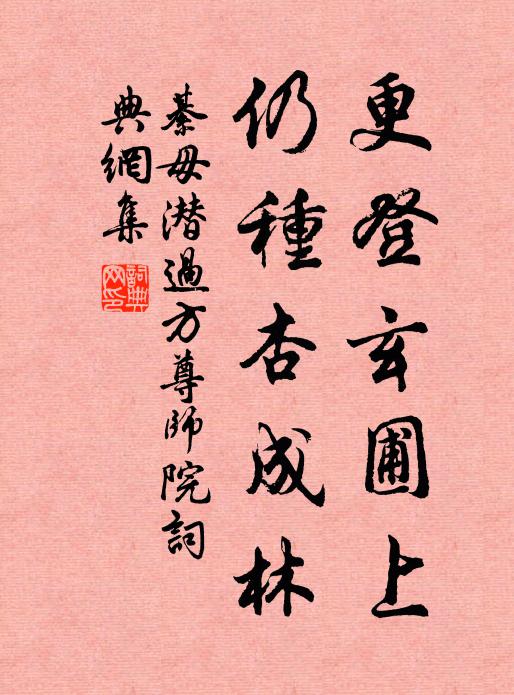 更登玄圃上
仍種杏成林
綦毋潜過方尊師院詞
典網集
詞典網印